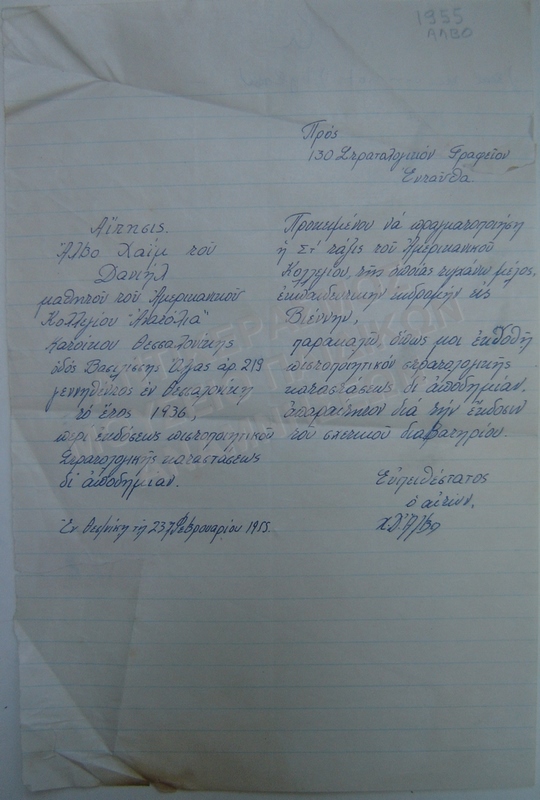 1955
ΑΛΒΟ
Πρός
130 Στρατολογικόν Γραφεῖον
Ἐνταῦθα.
Αἴτησις.
Ἄλβο Χαΐμ τοῦ
Δανιήλ
μαθητοῦ τοῦ Ἀμερικανικοῦ
Κολλεγίου "Ἀνατόλια"
κατοίκου Θεσσαλονίκης
ὁδός Βασιλίσσης Ὄλγας ἀρ. 219
γεννηθέντος ἐν Θεσσαλονίκῃ
τό ἔτος 1936,
περί ἐκδόσεως πιστοποιητικοῦ
Στρατολογικῆς καταστάσεως
δι' ἀποδημίαν.
Ἐν Θεσ/νίκῃ τῇ 23 Φεβρουαρίου 1955.
Προκειμένου νά πραγματοποιήσῃ
ἡ Στ' τάξις τοῦ Ἀμερικανικοῦ
Κολλεγίου, τῆς ὁποίας τυγχάνω μέλος,
ἐκπαιδευτικήν ἐκδρομήν εἰς
Βιέννην,
παρακαλῶ, ὅπως μοι ἐκδοθῇ
πιστοποιητικόν στρατολογικῆς
καταστάσεως δι' ἀποδημίαν.
ἀπαραίτητον διά τήν ἔκδοσιν
τοῦ σχετικοῦ διαβατηρίου.
Εὐπειθέστατος
ὁ αἰτῶν,
Χ.Δ. Ἄλβο